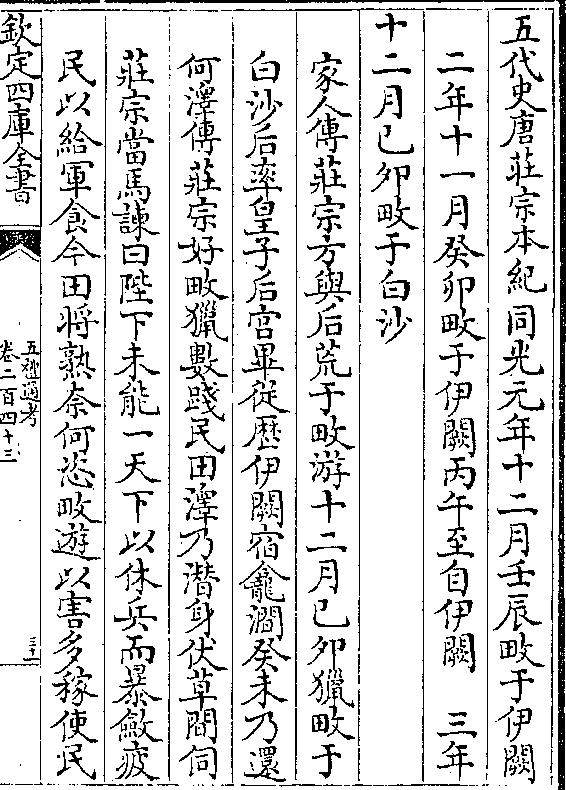 五代史唐莊宗本紀同光元年十二月壬辰畋于伊闕
二年十一月癸卯畋于伊闕丙午至自伊闕　三年
十二月己卯畋于白沙
家人傳莊宗方與后荒于畋游十二月己卯獵畋于
白沙后率皇子后宮畢從歷伊闕宿龕澗癸未乃還
何澤傳莊宗好畋獵數踐民田澤乃潛身伏草間伺
莊宗當馬諫曰陛下未能一天下以休兵而暴斂疲
民以給軍食今田將熟奈何恣畋遊以害多稼使民
欽定四庫全書
五禮通考
卷二百四十三
三十一